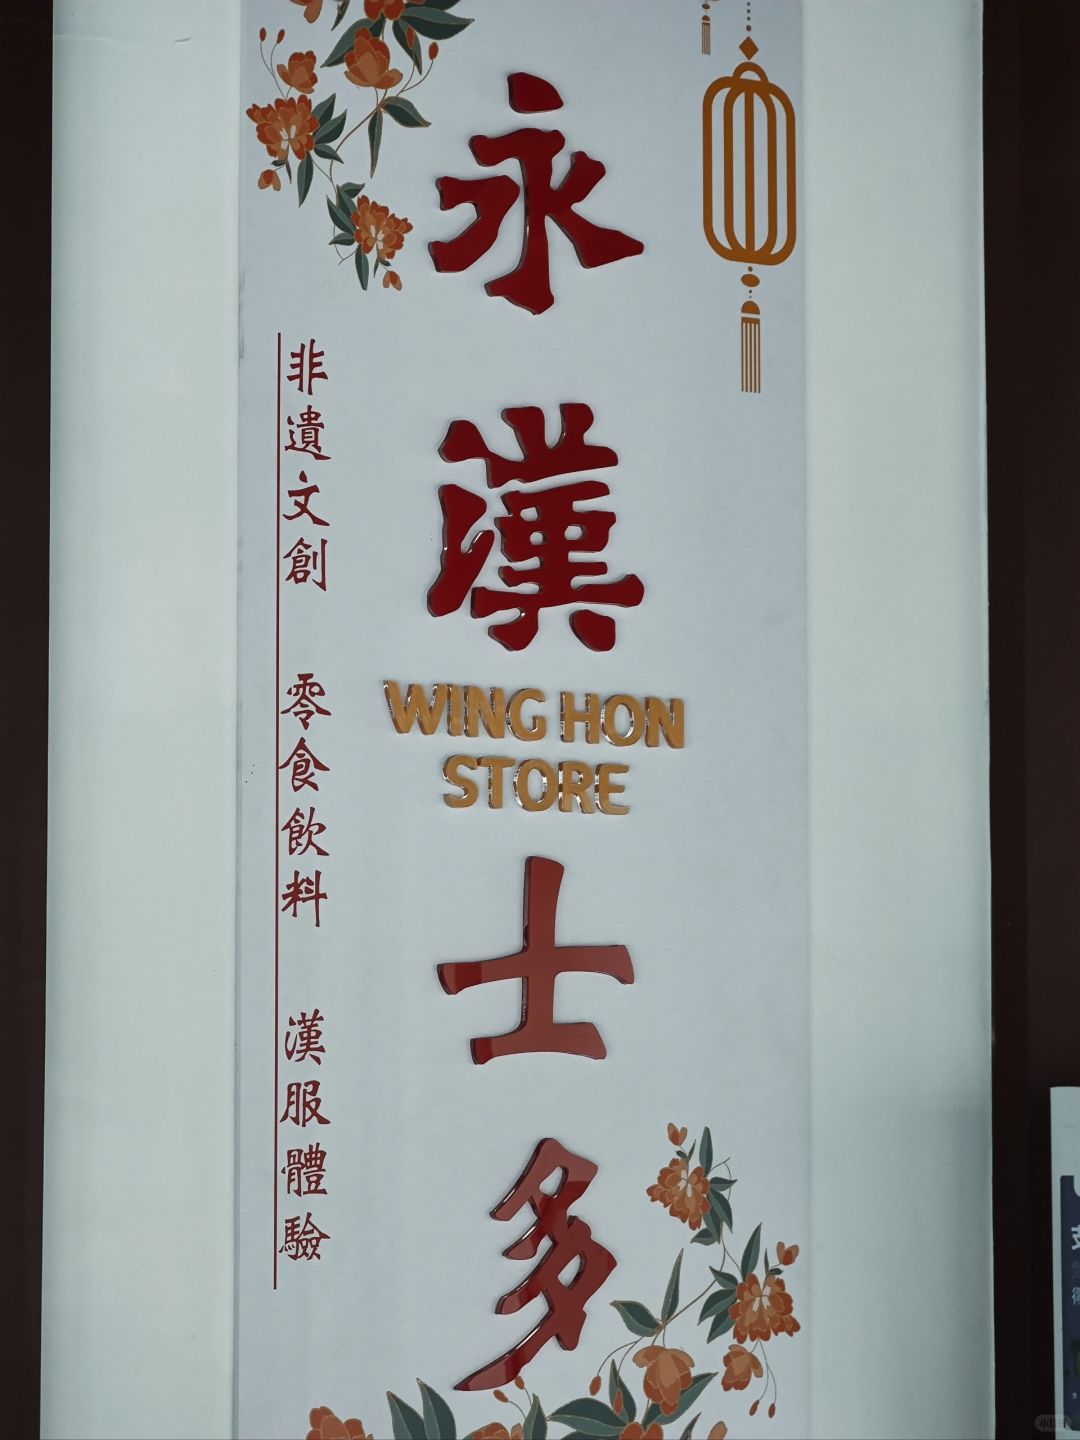 永漢
WING HON
STORE
士多
非遺文創 零食飲料 漢服體驗